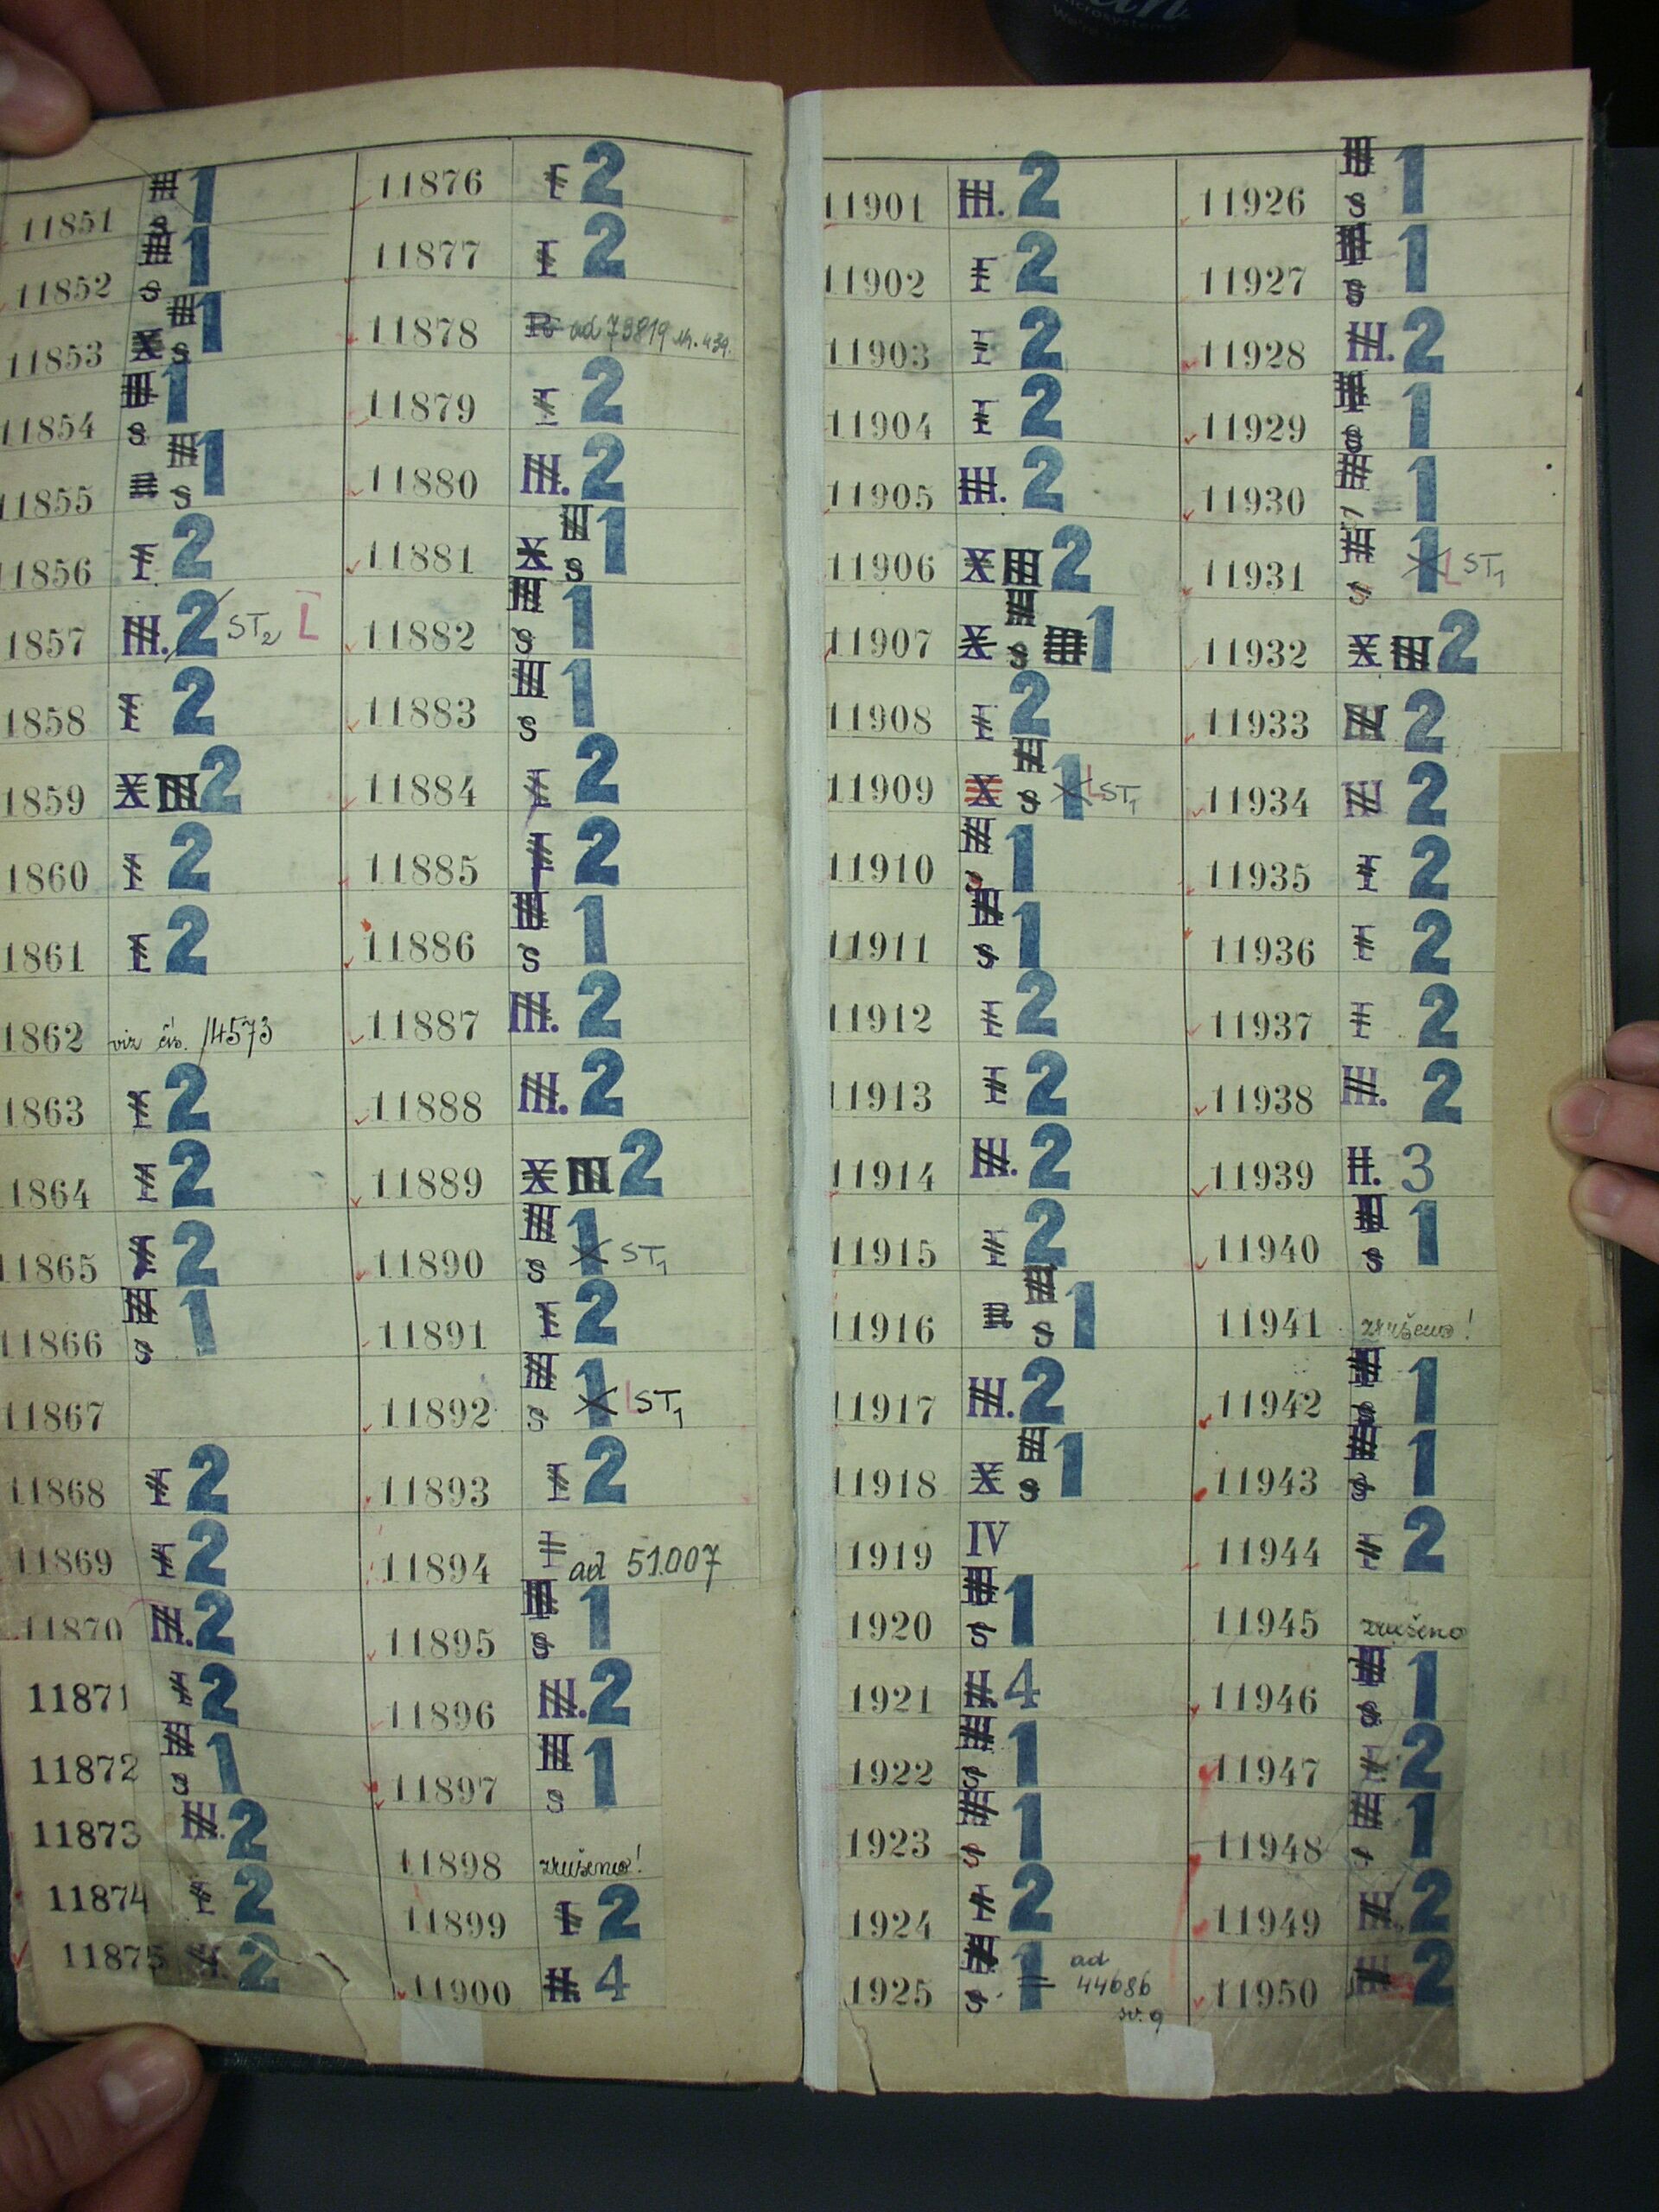 11851 III s 1
11852 III s 1
11853 X III s 1
11854 III s 1
11855 III s 1
11856 I 2
1857 III. 2 ST2 L
1858 I 2
1859 X III 2
1860 I 2
1861 I 2
1862 viz čís. 14573
1863 I 2
1864 I 2
11865 I 2
11866 III s 1
11867
11868 I 2
11869 I 2
11870 III. 2
11871 I 2
11872 III s 1
11873 III. 2
11874 I 2
11875 2
11876 I 2
11877 I 2
11878 R ad 73819
11879 I 2
11880 III. 2
11881 X III s 1
11882 III s 1
11883 III s 1
11884 I 2
11885 I 2
11886 III s 1
11887 III. 2
11888 III. 2
11889 X III 2
11890 III s 1 ST1
11891 I 2
11892 III s 1 L ST1
11893 I 2
11894 I ad 51.007
11895 III. s 1
11896 III. 2
11897 III s 1
11898 zrušeno!
11899 I 2
11900 II. 4
11901 III. 2
11902 I 2
11903 I 2
11904 I 2
11905 III. 2
11906 X III 2
11907 X III s 1
11908 I 2
11909 X III s 1 L ST1
11910 III s 1
11911 III s 1
11912 I 2
11913 I 2
11914 III. 2
11915 I 2
11916 R III s 1
11917 III. 2
11918 X III s 1
1919 IV
1920 III s 1
1921 II. 4
1922 III s 1
1923 III s 1
1924 I 2
1925 III. s 1 ad
44686
sv. 9
11926 III s 1
11927 III s 1
11928 III. 2
11929 III s 1
11930 III 1
11931 III s 1 L ST1
11932 X III 2
11933 III 2
11934 III 2
11935 I 2
11936 I 2
11937 I 2
11938 III. 2
11939 II. 3
11940 III s 1
11941 zrušeno!
11942 III s 1
11943 III s 1
11944 I 2
11945 zrušeno
11946 III s 1
11947 I 2
11948 III s 1
11949 III. 2
11950 III 2